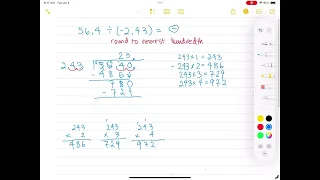 56.4 ÷ (-2.43) = ⊖
round to nearest hundredth
23.
243 5640
- 486
780
- 729
243 × 1 = 243
243 × 2 = 486
243 × 3 = 729
243 × 4 = 972
243 243 243
× 2 × 3 × 4
486 729 972